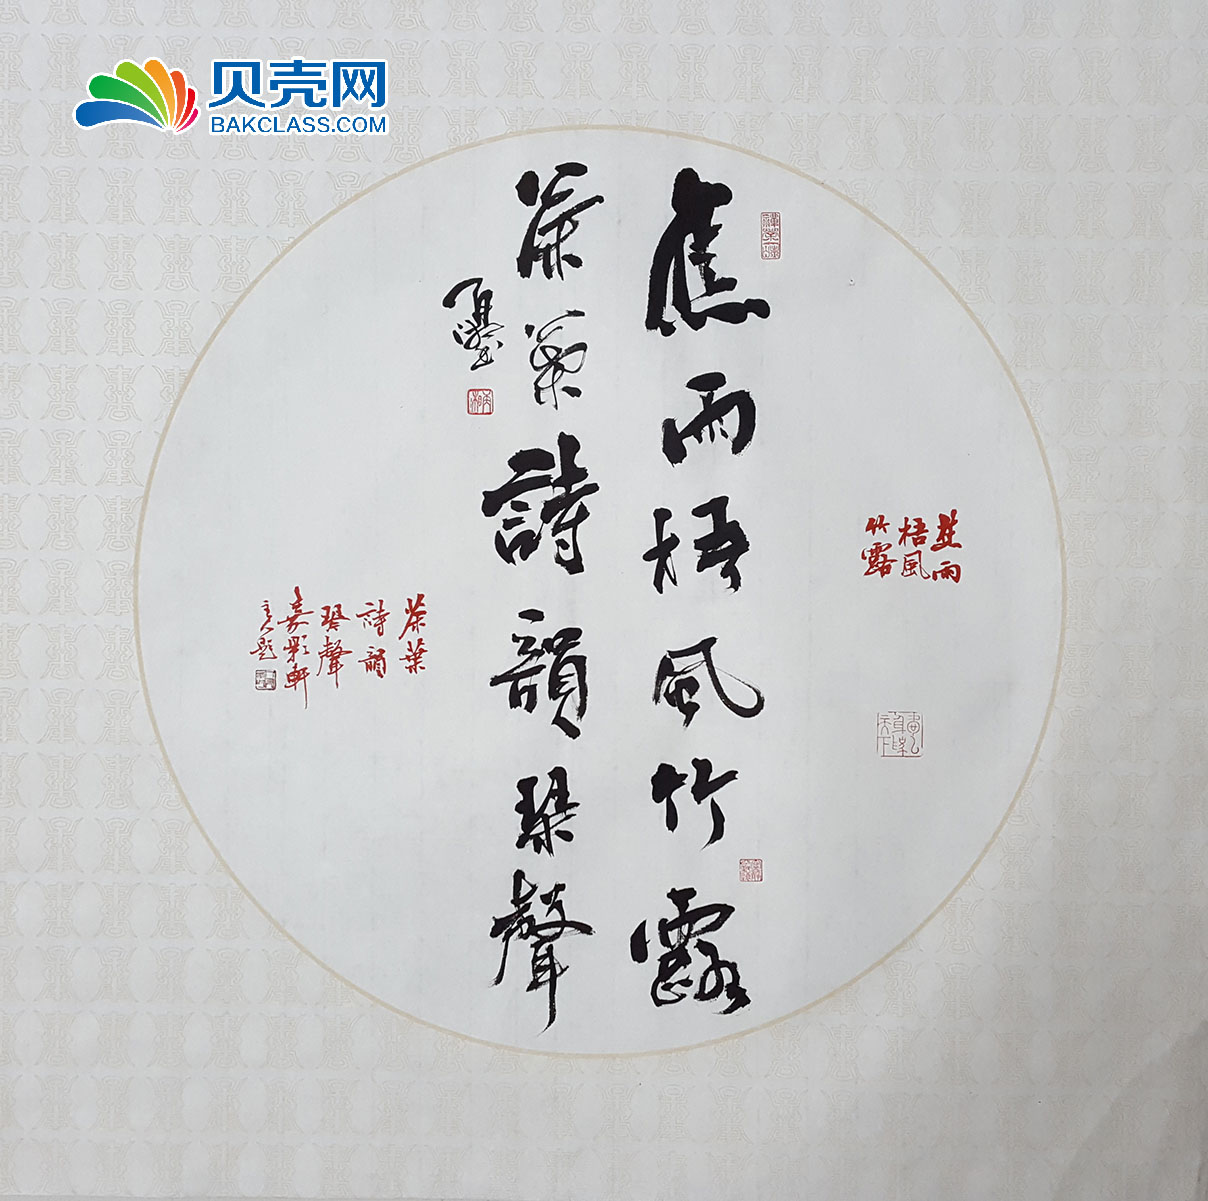 贝壳网
BAKCLASS.COM
蕉雨梧風竹露
茶葉詩韻琴聲
蕉雨
梧風
竹露
茶葉
詩韻
琴聲
嘉彩軒
題